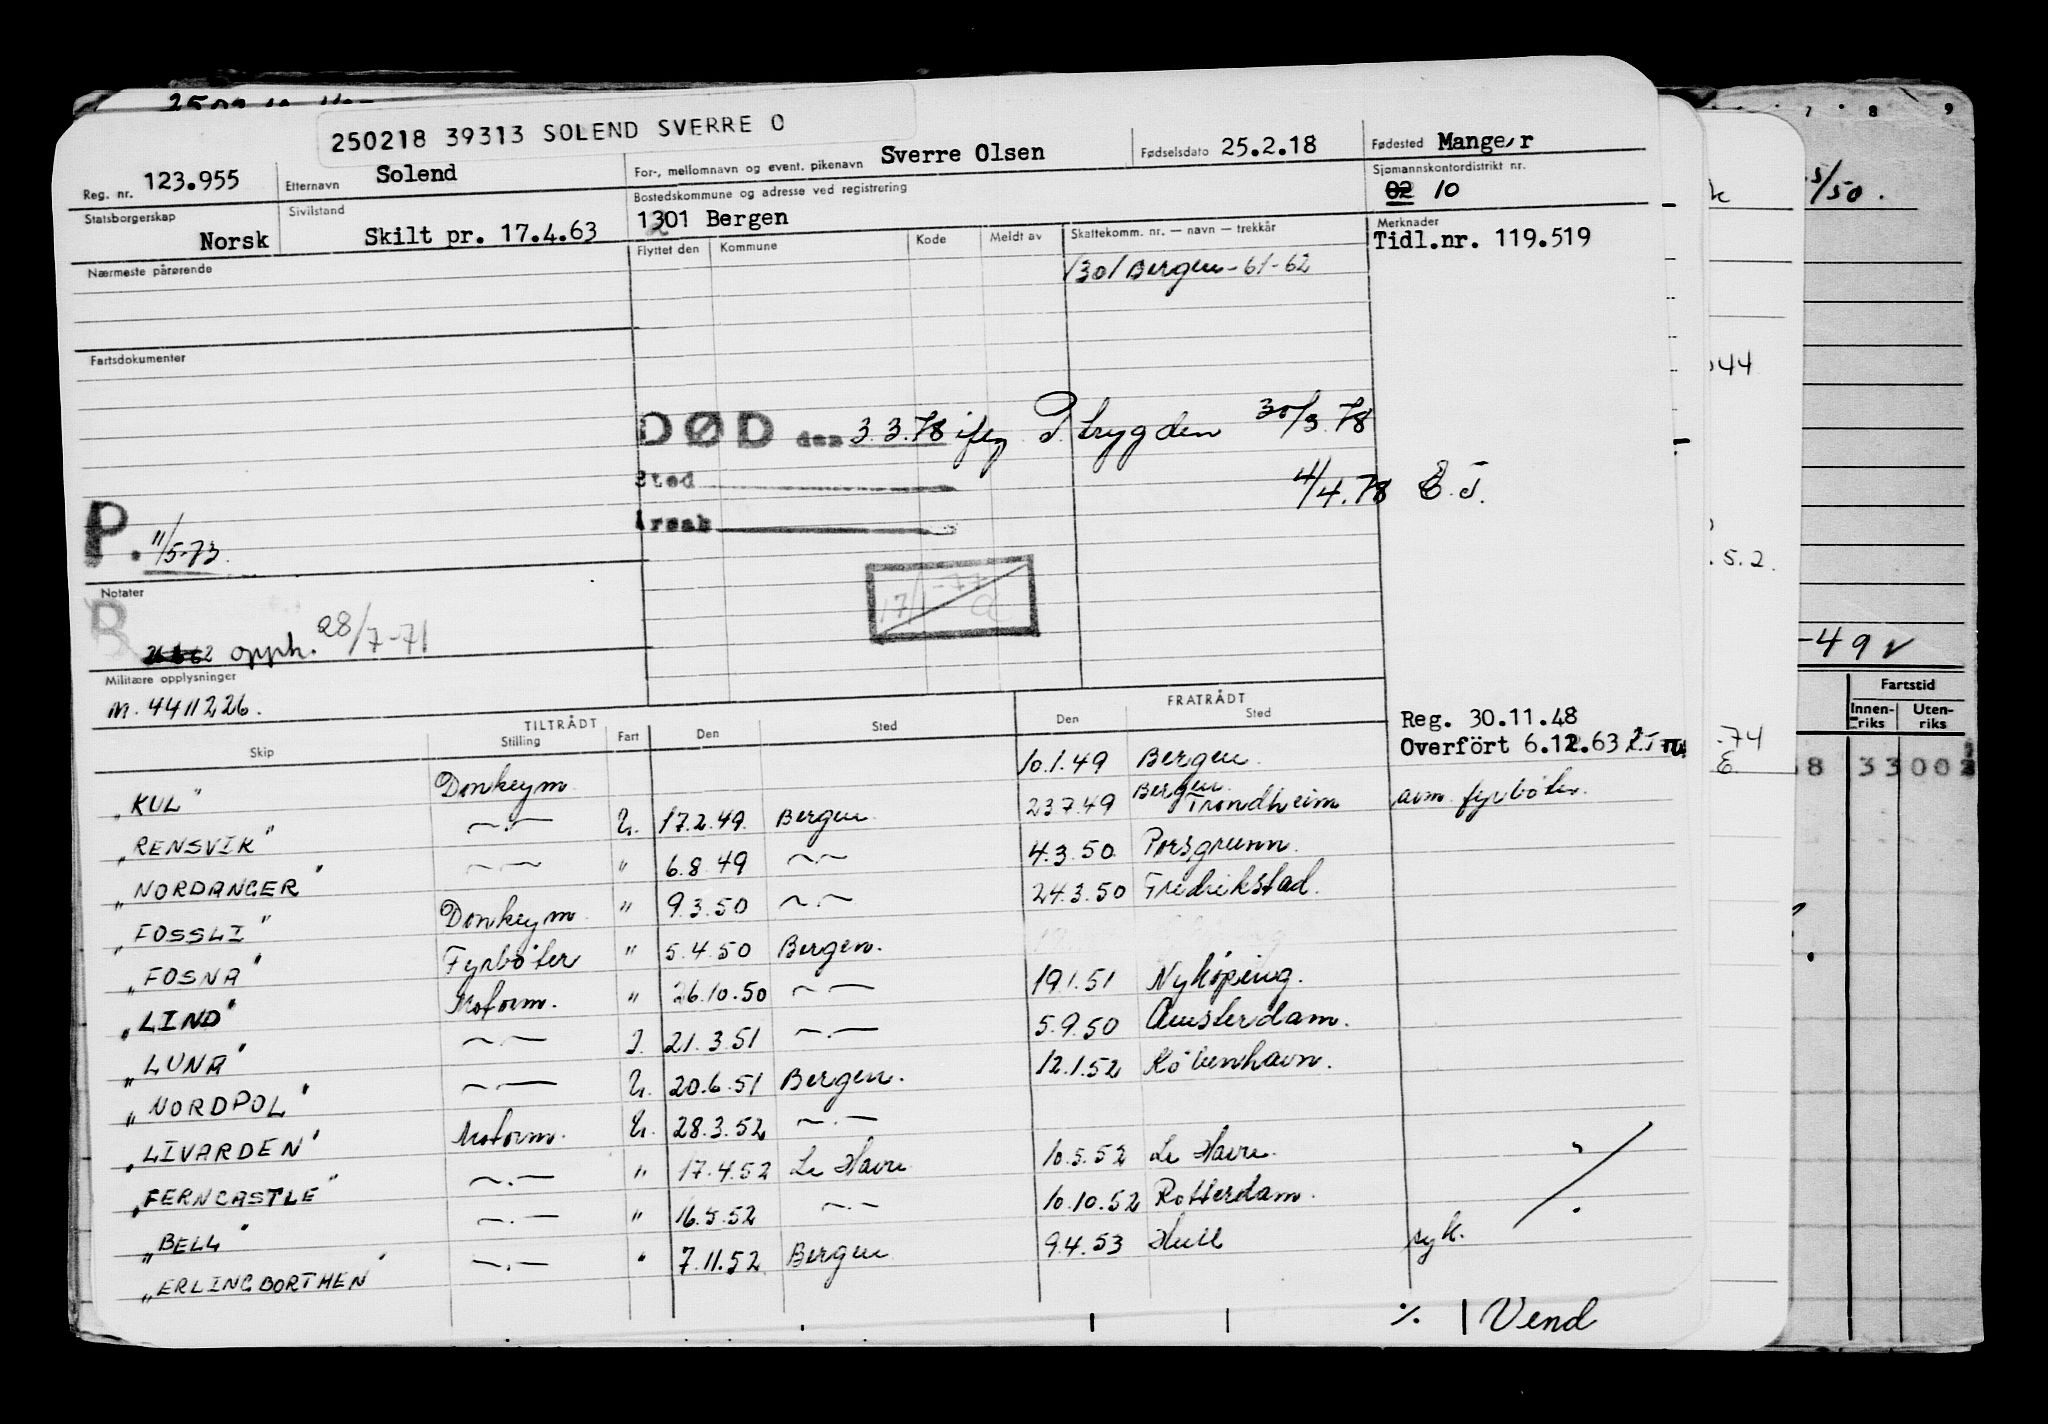 250218 39313 SOLEND SVERRE O
Reg. nr. 123.955 Etternavn Solend For-, mellomnavn og event. pikenavn Sverre Olsen Fødselsdato 25.2.18 Fødested Manger
Statsborgerskap Norsk Sivilstand Skilt pr. 17.4.63 Bostedskommune og adresse ved registrering 1301 Bergen Sjømannskontordistrikt nr. 02 10
Nærmeste pårørende Flyttet den Kommune Kode Meldt av Skattekomm. nr. — navn — trekkår Merknader Tidl.nr. 119.519
1301 Bergen - 61 - 62
Fartsdokumenter
DØD den 3.3.78 ifg P. trygden 30/3.78
Sted 4/4.78 E.J.
Årsak
P. 11/5-73.
17/1-77
Notater
B opph. 28/7-71
Militære opplysninger
M. 4411226.
TILTRÅDT FRATRÅDT
Skip Stilling Fart Den Sted Den Sted
Reg. 30.11.48
Overført 6.12.63
"KUL" Donkeym. 10.1.49 Bergen.
"RENSVIK" —.— U. 17.2.49. Bergen 23.7.49 Bergen Trondheim avm. fyrbøter.
"NORDANGER" —.— " 6.8.49 —.— 4.3.50. Porsgrunn.
"FOSSLI" Donkeym " 9.3.50 —.— 24.3.50 Fredrikstad.
"FOSNA" Fyrbøter " 5.4.50 Bergen.
"LIND" Motorm. " 26.10.50 —.— 19.1.51 Nykøping.
"LUNA" —.— I. 21.3.51 —.— 5.9.50 Amsterdam.
"NORDPOL" —.— U. 20.6.51 Bergen. 12.1.52 København.
"LIVARDEN" Motorm. U. 28.3.52 —.—
"FERNCASTLE" —.— " 17.4.52 Le Havre 10.5.52 Le Havre.
"BELL" —.— " 16.5.52 —.— 10.10.52 Rotterdam.
"ERLING BORTHEN" —.— " 7.11.52 Bergen 9.4.53 Hull syk.
% | Vend
7 8 9
5/50.
44
.5.2.
-49 v
Fartstid
Innen-riks Uten-riks
-74
E.
8 3300